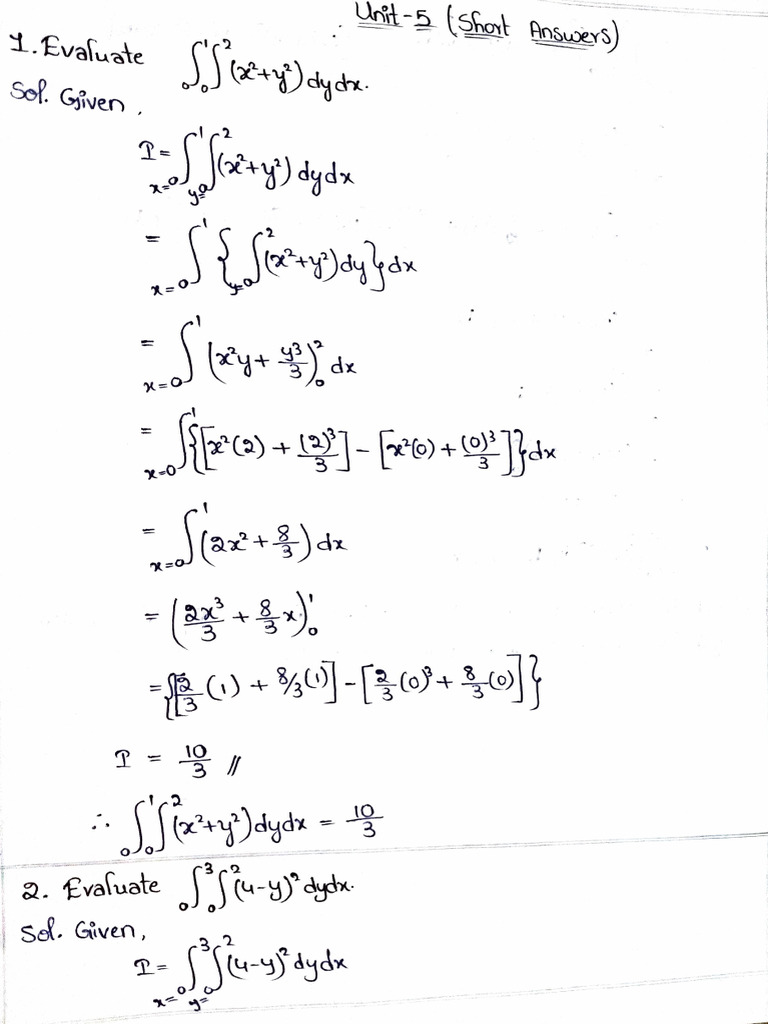 Unit-5 (Short Answers)
1. Evaluate ∫₀¹∫₀²(x²+y²) dy dx.
Sol. Given,
I = ∫ₓ₌₀¹∫ᵧ₌₀²(x²+y²) dy dx
= ∫ₓ₌₀¹ {∫ᵧ₌₀²(x²+y²) dy} dx
= ∫ₓ₌₀¹ (x²y + y³/3)₀² dx
= ∫ₓ₌₀¹ {[x²(2) + (2)³/3] - [x²(0) + (0)³/3]} dx
= ∫ₓ₌₀¹ (2x² + 8/3) dx
= (2x³/3 + 8/3 x)₀¹
= {[2/3 (1) + 8/3(1)] - [2/3 (0)³ + 8/3 (0)]}
I = 10/3 //
∴ ∫₀¹∫₀²(x²+y²) dy dx = 10/3
2. Evaluate ∫₀³∫₀²(4-y)² dy dx.
Sol. Given,
I = ∫ₓ₌₀³∫ᵧ₌₀²(4-y)² dy dx